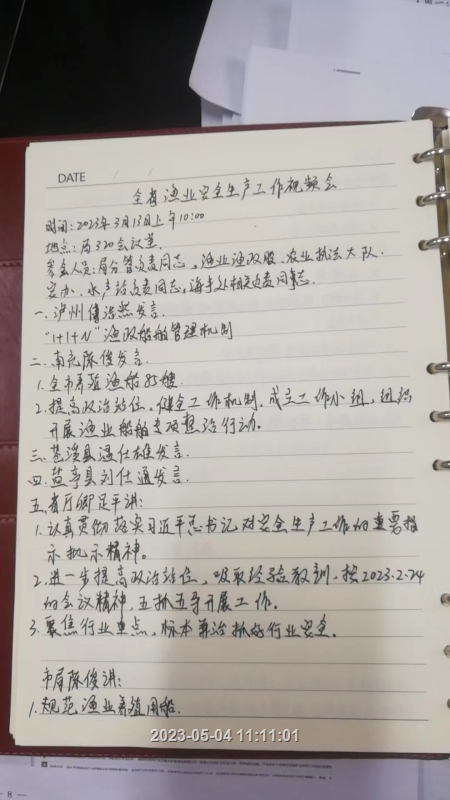 DATE / /
全省渔业安全生产工作视频会
时间:2023年3月13日上午10:00
地点:局320会议室
参会人员:局分管负责同志、渔业渔政股、农业执法大队、
安办、水产站负责同志,海事处相关负责同志。
一、泸州傅浩然发言
"1+1+N"渔政船舶管理机制
二、南充陈俊发言
1.全市养殖渔船85艘
2.提高政治站位,健全工作机制,成立工作小组,组织
开展渔业船舶专项整治行动。
三、苍溪县温仕雄发言
四、盐亭县刘仕通发言
五、省厅卿足平讲:
1.认真贯彻落实习近平总书记对安全生产工作的重要指
示批示精神。
2.进一步提高政治站位,吸取经验教训,按2023.2.24
的会议精神,五抓五导开展工作。
3.聚焦行业重点,标本兼治抓好行业安全。
市局陈俊讲:
1.规范渔业养殖用船.
2023-05-04 11:11:01
8